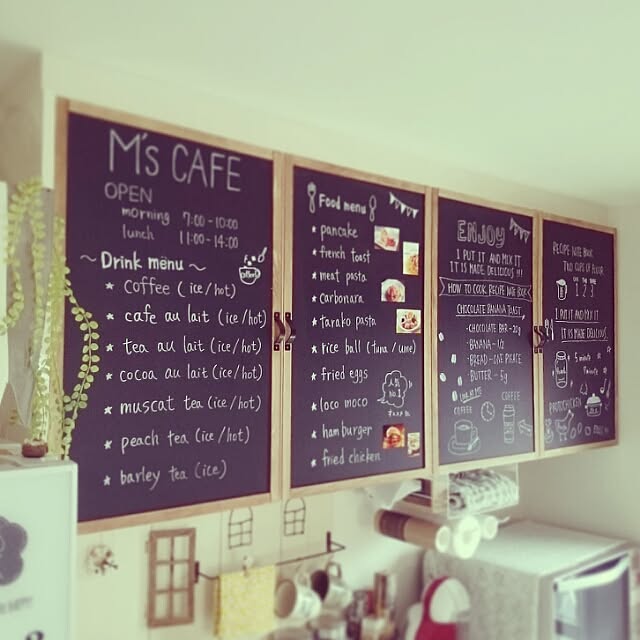 M's CAFE
OPEN
morning 7:00-10:00
lunch 11:00-14:00
~ Drink menu ~
* coffee (ice/hot)
* cafe au lait (ice/hot)
* tea au lait (ice/hot)
* cocoa au lait (ice/hot)
* muscat tea (ice/hot)
* peach tea (ice/hot)
* barley tea (ice)
Food menu
* pancake
* french toast
* meat pasta
* carbonara
* tarako pasta
* rice ball (tuna/ume)
* fried eggs
* loco moco
No.1
* hamburger
* fried chicken
ENJOY
I PUT IT AND MIX IT
IT IS MADE DELICIOUS!!!
HOW TO COOK RECIPE NOTE BOOK
CHOCOLATE BANANA TOAST
・CHOCOLATE BAR-20g
・BREAD-ONE PIRATE
・BUTTER-5g
COFFEE
COFFEE
RECIPE NOTE BOOK
TWO CUPS OF FLOUR
1 2 3
I PUT IT AND MIX IT
IT IS MADE DELICIOUS
5 minutes